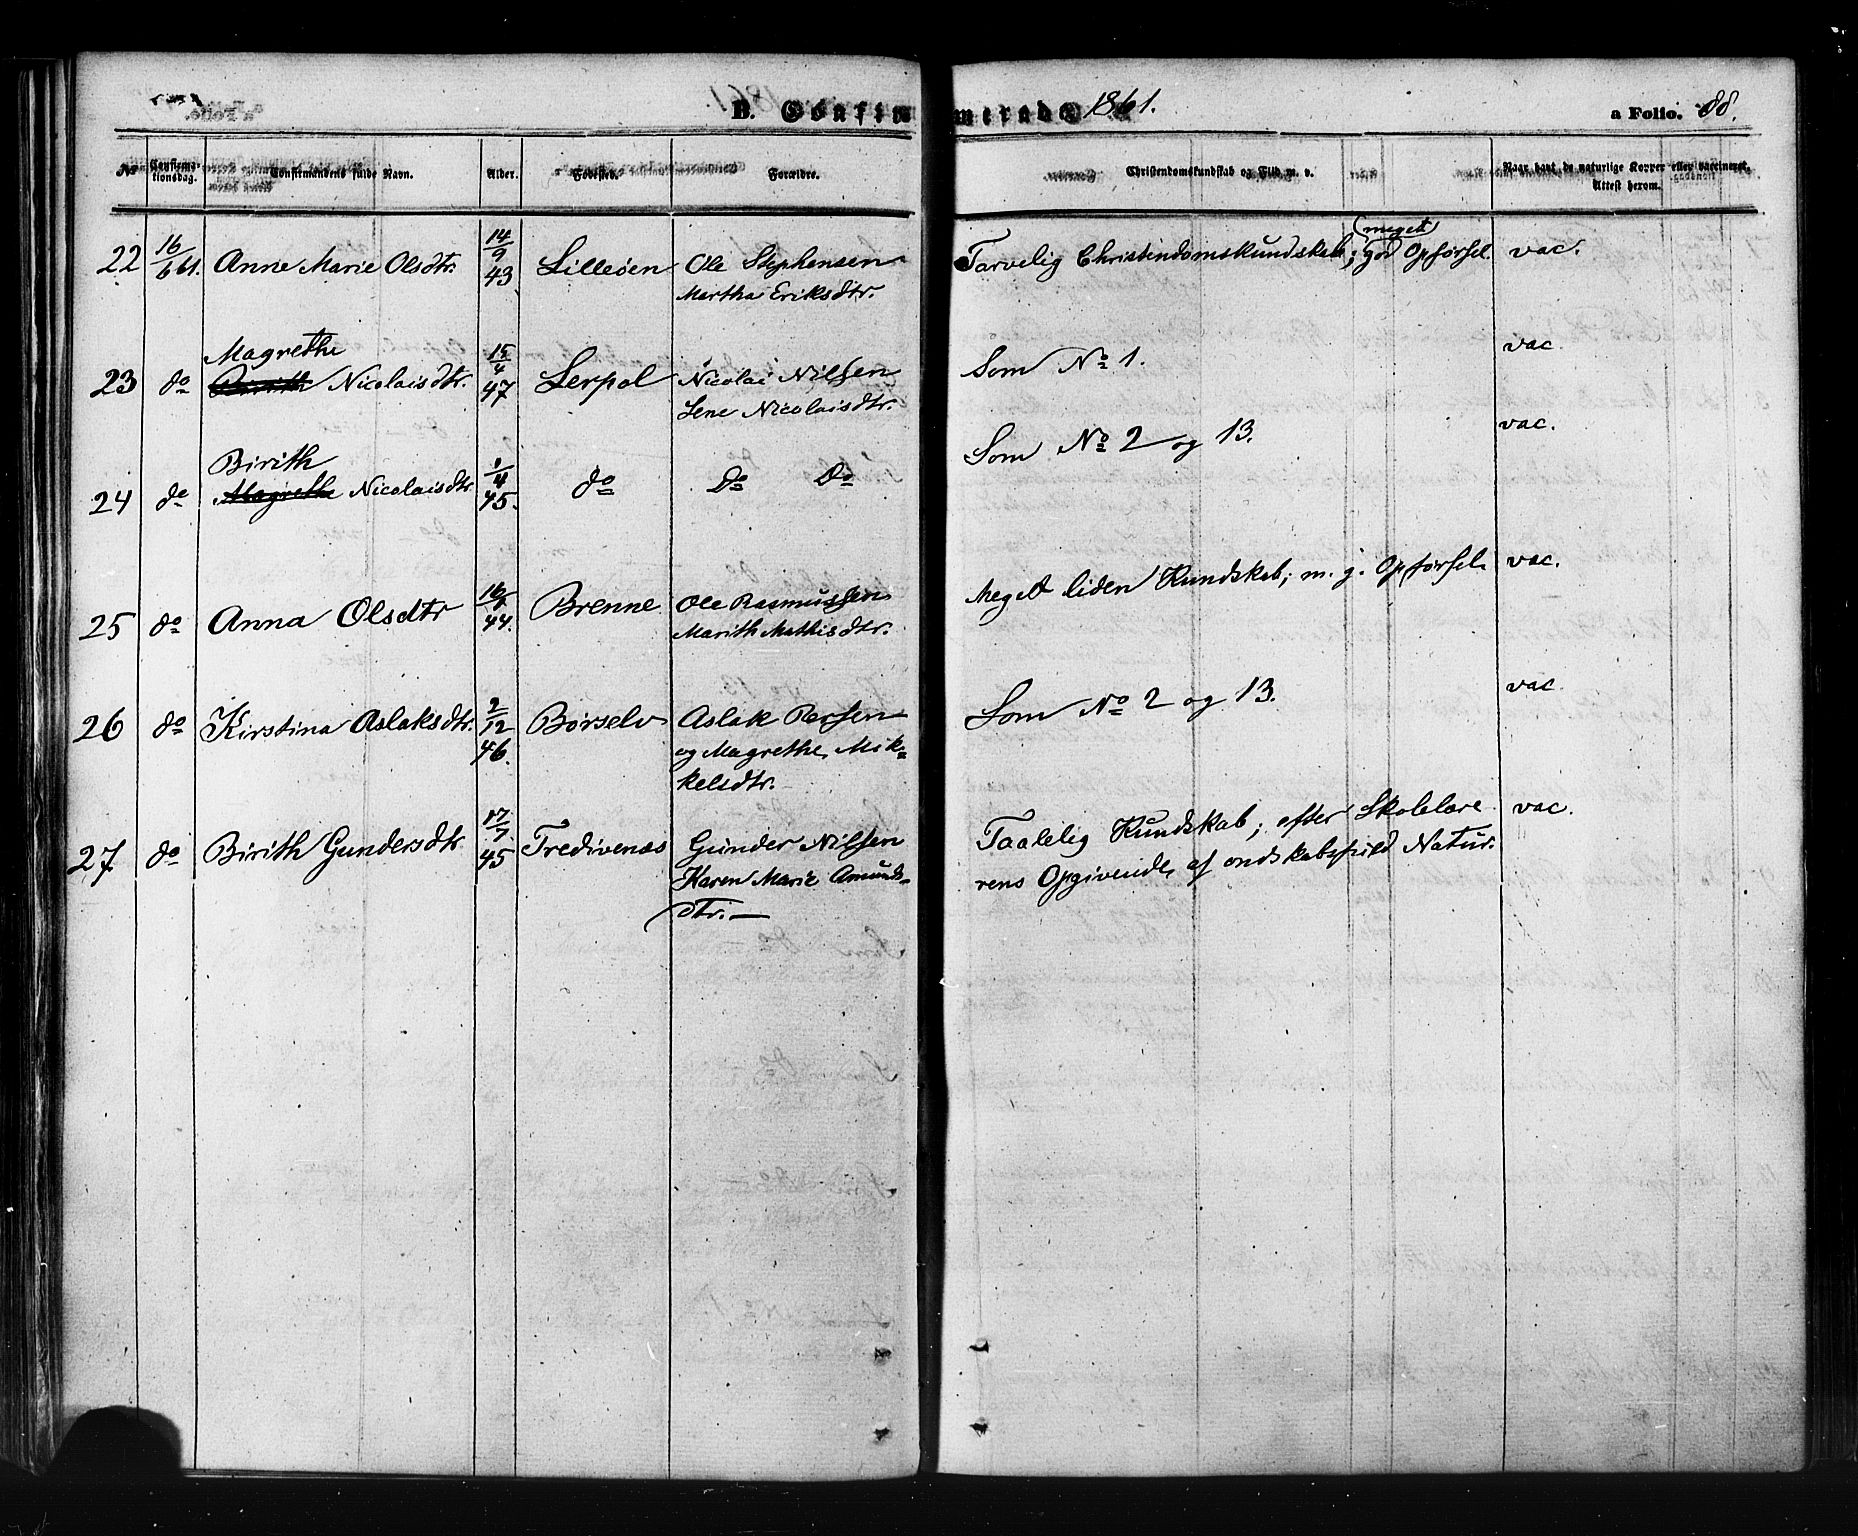 B. Confirmerede 1861.
a Folio. 88.
No Confirmationsdag. Confirmandens fulde Navn. Alder. Fødested. Forældre. Christendomskundskab og Flid m. v. Naar havt de naturlige Kopper eller vaccineret, Attest herom.
22 16/6 61. Anne Marie Olsdtr. 14/9 43 Lilleöen Ole Stephensen Tarvelig Christendomskundskab; meget god Opförsel. vac.
Martha Eriksdtr.
Magrethe
23 do Birith Nicolaisdtr. 15/4 47 Lerpol Nicolai Nilsen Som No 1. vac.
Lene Nicolaisdtr.
Birith
24 do Magrethe Nicolaisdtr. 1/4 45. do Do Do Som No 2 og 13. vac.
25 do Anna Olsdtr 44. Brenne Ole Rasmussen Meget liden Kundskab; m. g. Opförsel. vac.
Marith Mathisdtr.
26 do Kirstina Aslaksdtr. 2/12 46. Börselv Aslak Persen Som No 2 og 13. vac.
og Magrethe Mik=
kelsdtr.
27 do Birith Gundersdtr. 17/7 45 Tredivenæs Gunder Nilsen Taalelig Kundskab; efter Skolelære vac.
Karen Marie Amunds- rens Opgivende, af ondskabsfuld Natur.
dtr. —